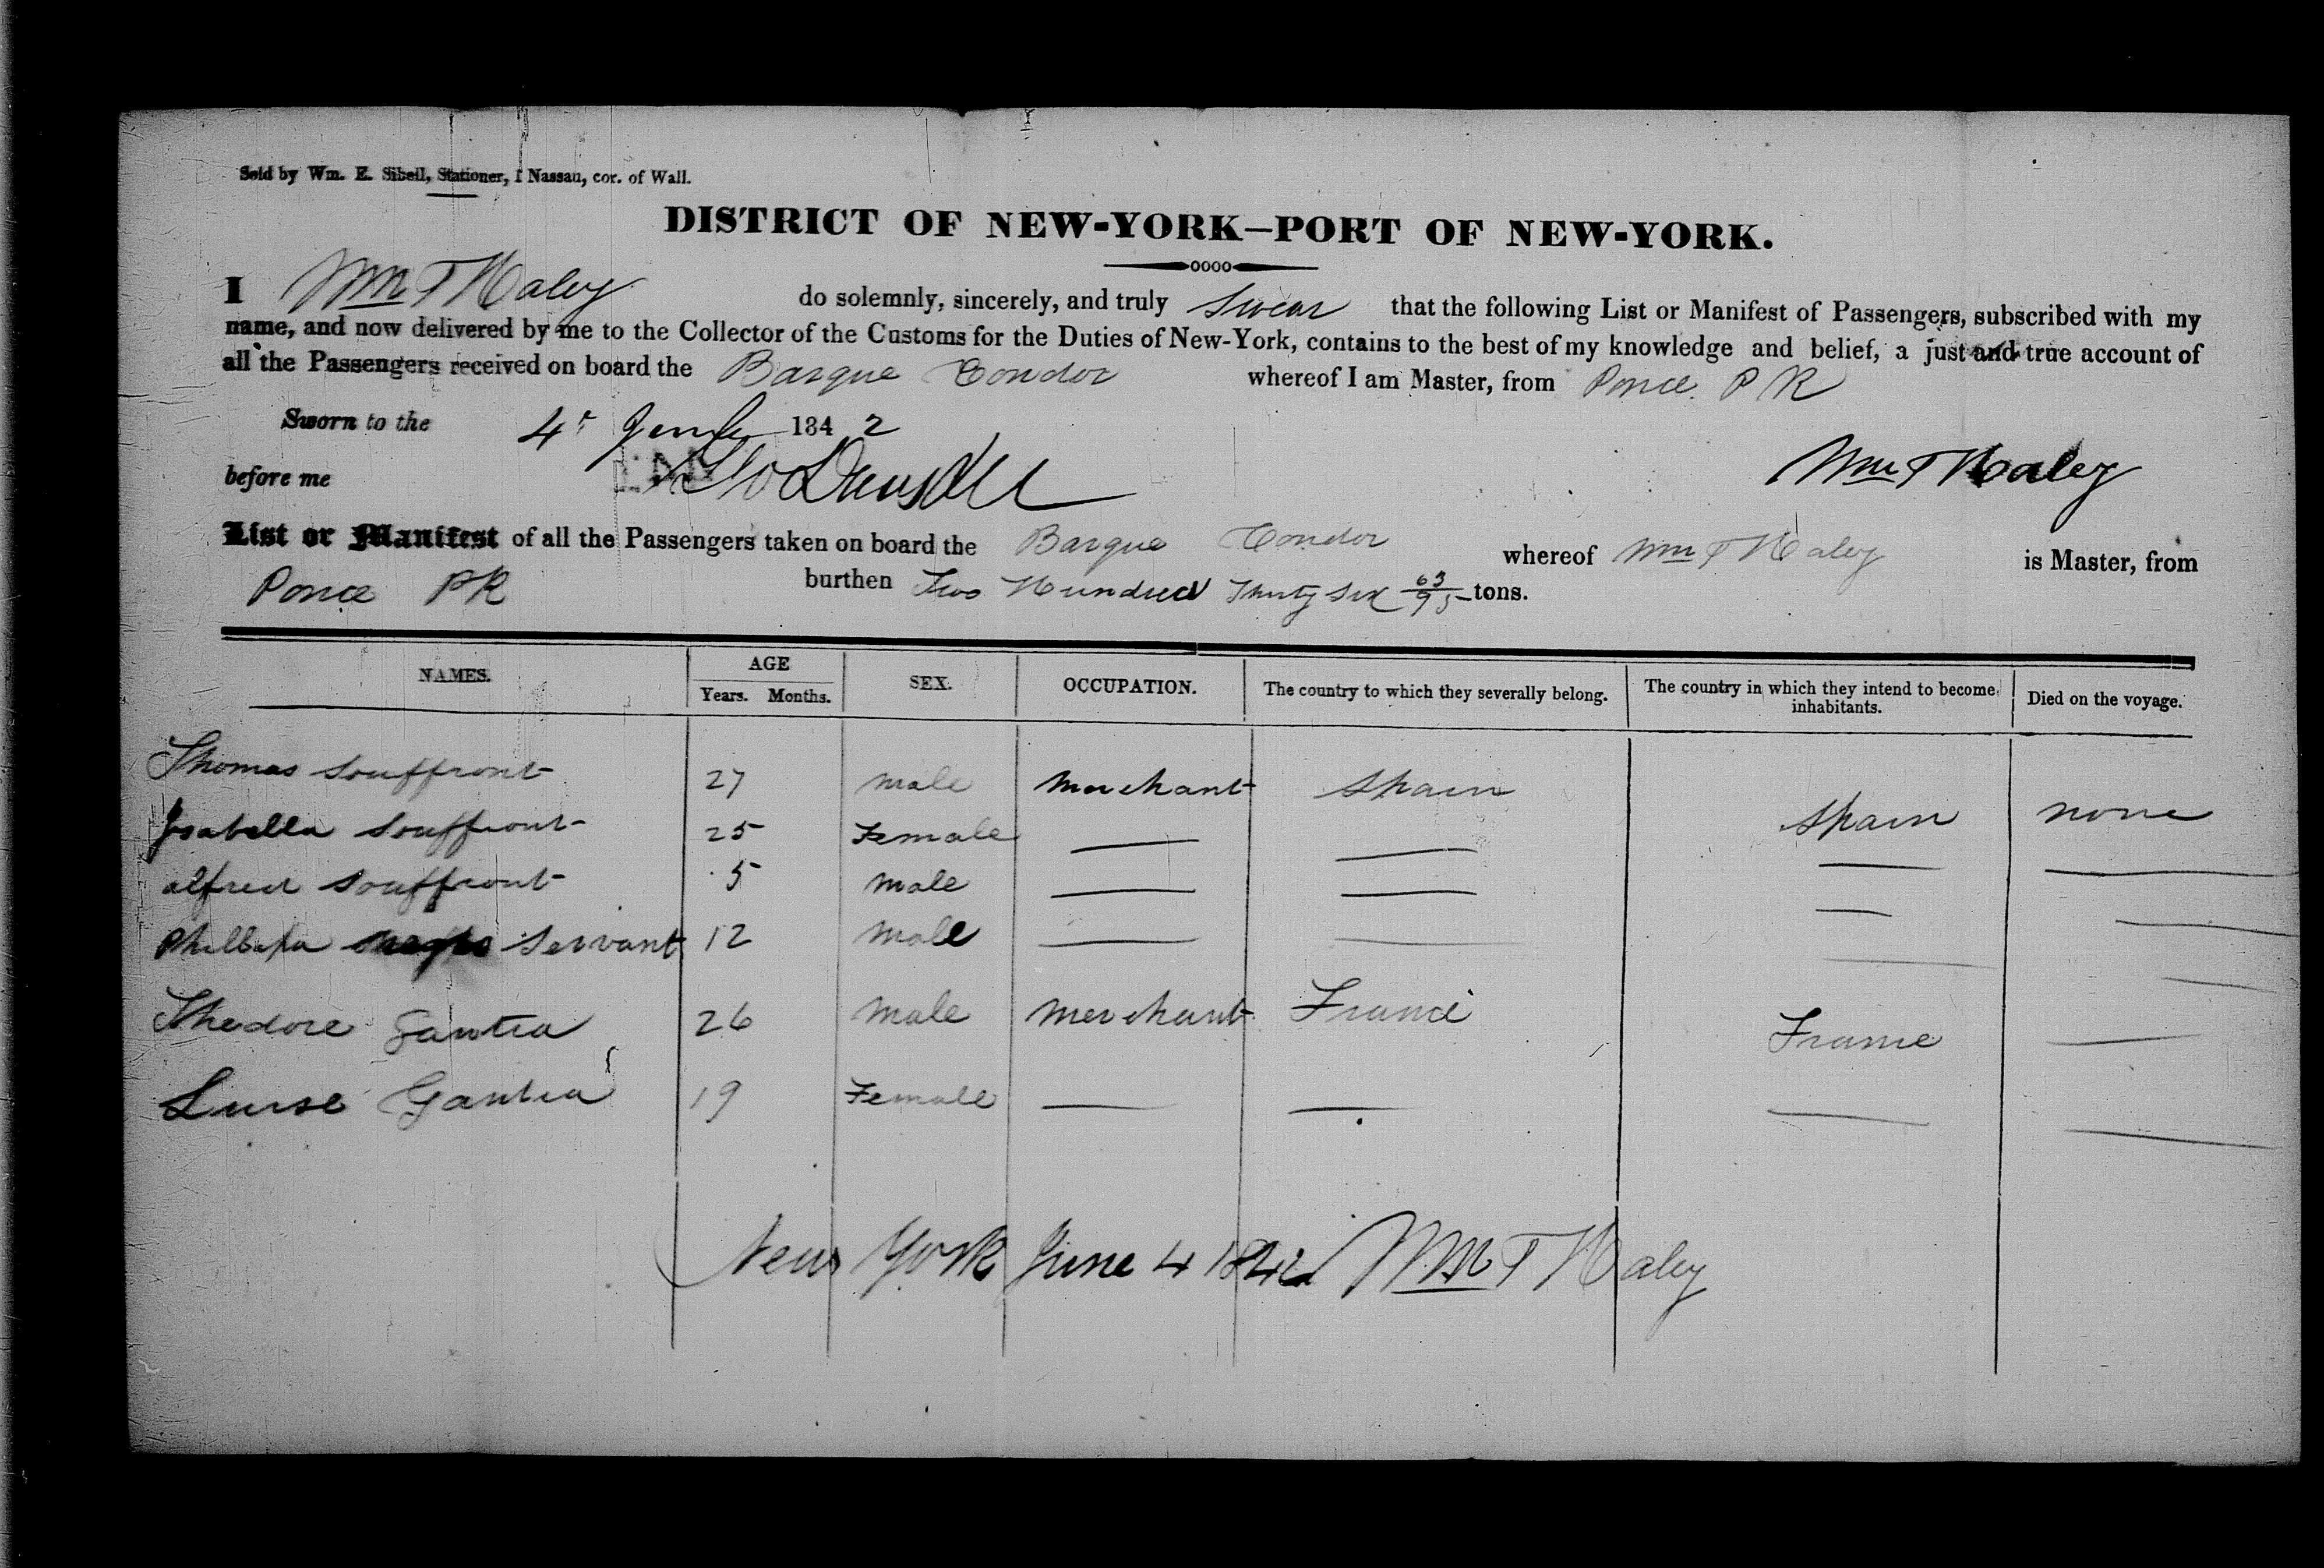 Sold by Wm. E. Sibell, Stationer, 1 Nassau, cor. of Wall.
DISTRICT OF NEW-YORK—PORT OF NEW-YORK.
I Wm T Haley do solemnly, sincerely, and truly Swear that the following List or Manifest of Passengers, subscribed with my
name, and now delivered by me to the Collector of the Customs for the Duties of New-York, contains to the best of my knowledge and belief, a just and true account of
all the Passengers received on board the Barque Condor whereof I am Master, from Ponce P R
Sworn to the 4 1842
before me Wm T Haley
List or Manifest of all the Passengers taken on board the Barque Condor whereof Wm T Haley is Master, from
Ponce PR burthen Two Hundred Thirty Six 63/95 tons.
NAMES. AGE Years. Months. SEX. OCCUPATION. The country to which they severally belong. The country in which they intend to become inhabitants. Died on the voyage.
Thomas Souffront 27 male merchant Spain Spain none
Isabella Souffront 25 Female
alfred Souffront 5 male
Servant 12 male
Thedore Gantia 26 male merchant France France
Luise Gantia 19 Female
New York June 4 1842 Wm T Haley